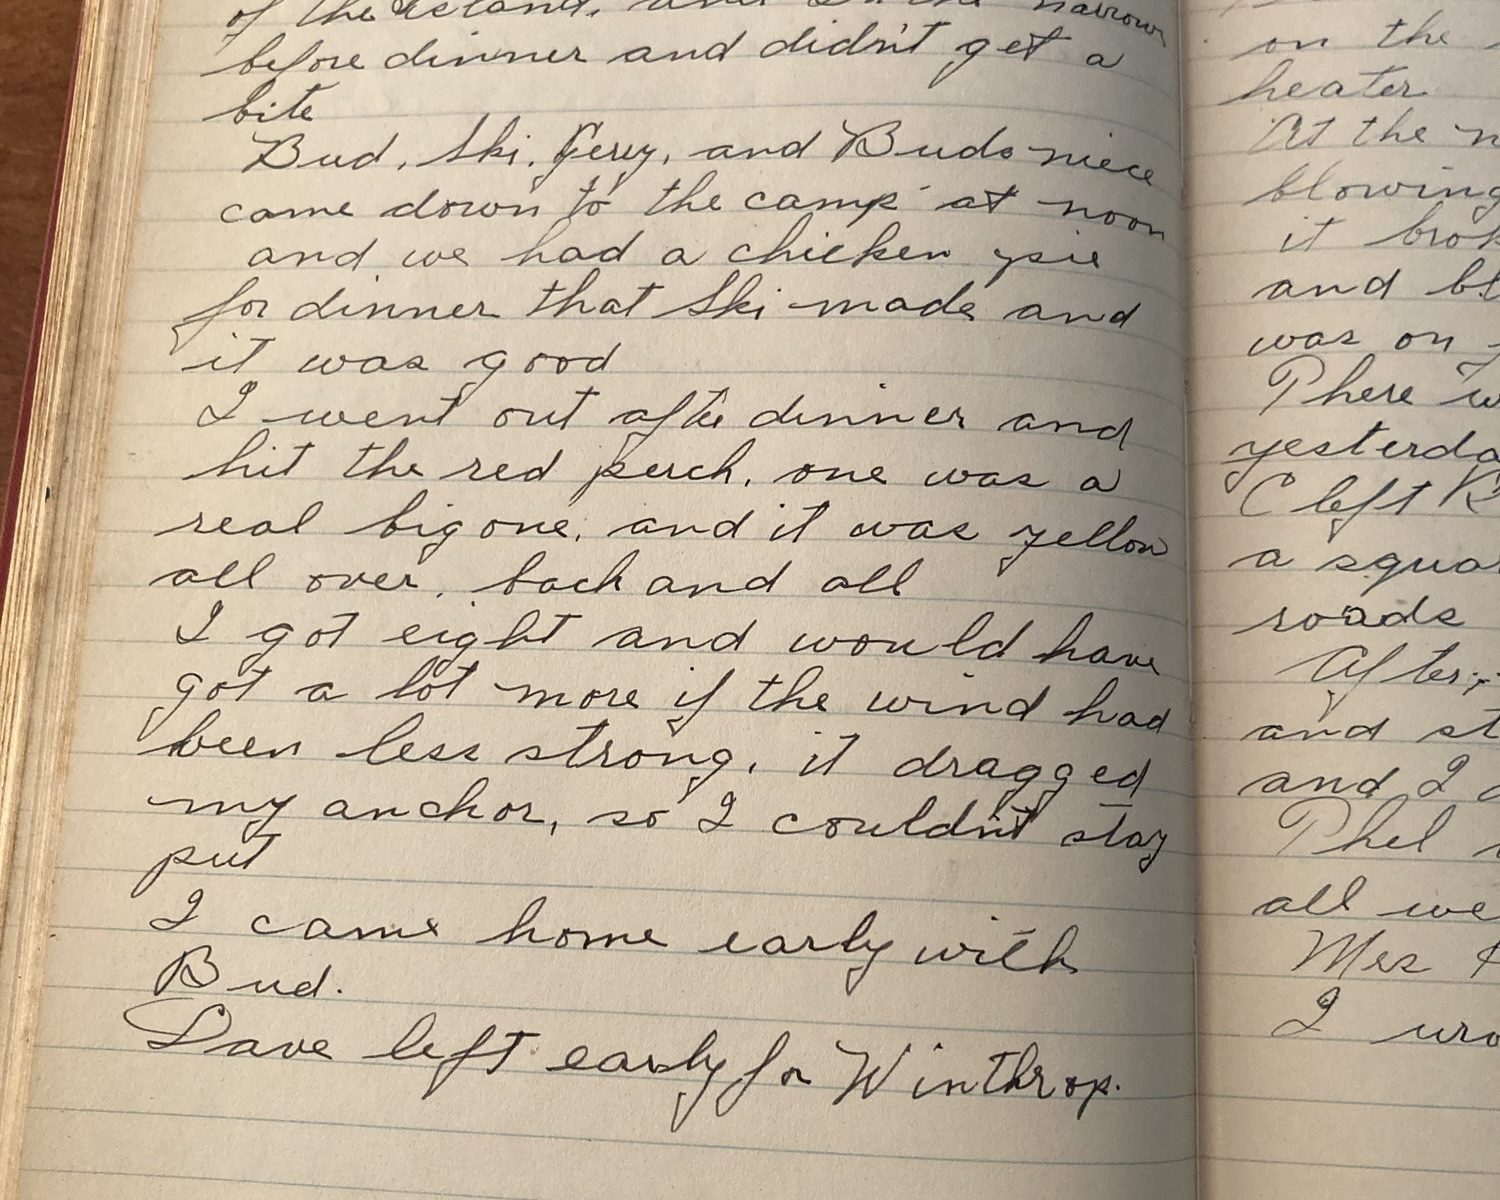 of the Island, and in the narrows
before dinner and didn't get a
bite
Bud, Ski, Gerry, and Buds niece
came down to the camp at noon
and we had a chicken pie
for dinner that Ski made and
it was good
I went out after dinner and
hit the red perch, one was a
real big one, and it was yellow
all over, back and all
I got eight and would have
got a lot more if the wind had
been less strong, it dragged
my anchor, so I couldn't stay
put
I came home early with
Bud.
Dave left early for Winthrop.
on the
heater
At the
blowing
it
and
was on
yesterda
left
a
roads
After
and
and I
Phel
all we
Mrs
I